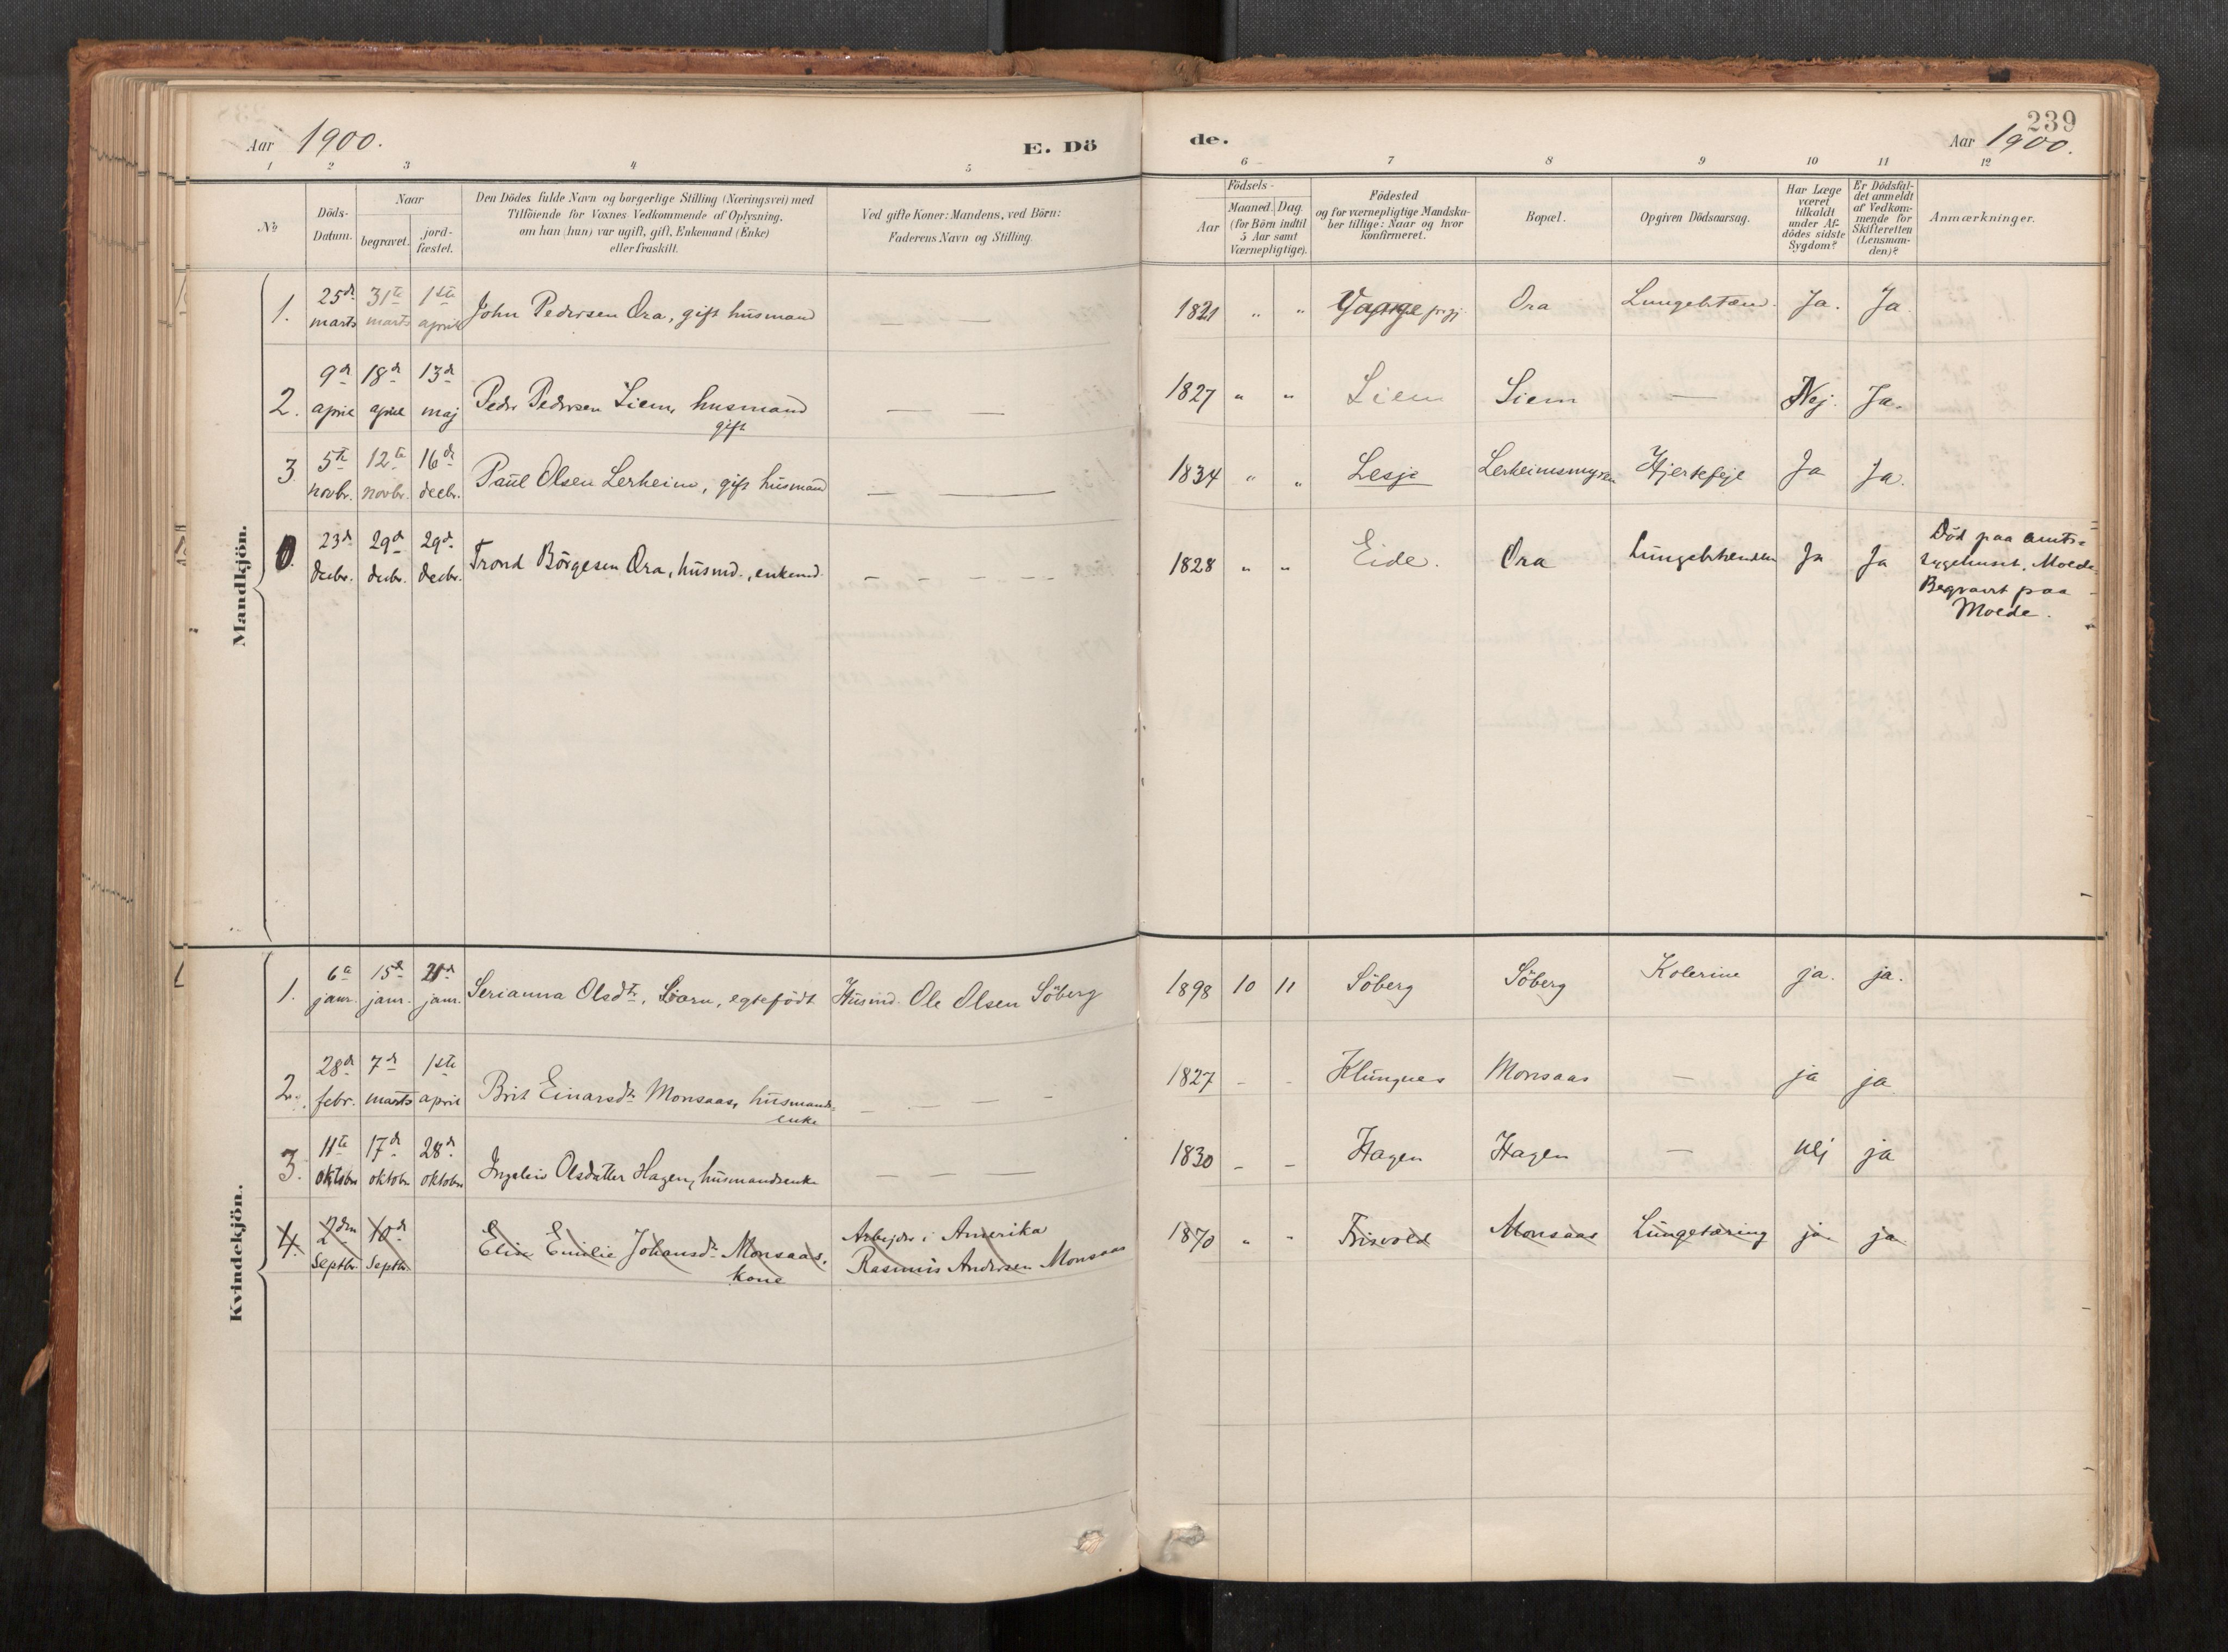 239
Aar 1900.
E. Dö
de.
Aar 1900.
1 2 3 4 5 6 7 8 9 10 11 12
No
Döds-Datum.
Naar
begravet.
jord-fæstet.
Den Dödes fulde Navn og borgerlige Stilling (Næringsvei) med
Tilföiende for Voxnes Vedkommende af Oplysning,
om han (hun) var ugift, gift, Enkemand (Enke)
eller fraskilt.
Ved gifte Koner: Mandens, ved Börn:
Faderens Navn og Stilling.
Födsels-
Aar
Maaned. Dag.
(for Börn indtil
5 Aar samt
Værnepligtige).
Födested
og for værnepligtige Mandska-
ber tillige: Naar og hvor
konfirmeret.
Bopæl.
Opgiven Dödsaarsag.
Har Læge
været
tilkaldt
under Af-
dödes sidste
Sygdom?
Er Dödsfal-
det anmeldt
af Vedkom-
mende for
Skifteretten
(Lensman-
den)?
Anmærkninger.
Mandkjön.
1. 25de marts 31te marts 1ste april John Pedersen Ora, gift husmand — — 1821 " " Vaage prgj. Ora Lungebetænd. Ja. Ja.
2. 9de april 18de april 13de maj Peder Pedersen Siem, husmand gift — — 1827 " " Siem Siem — Nej. Ja.
3. 5te novbr. 12te novbr. 16de decbr. Paul Olsen Lerheim, gift husmand — — 1834 " " Lesje Lerheimsmyren Hjertefejl Ja Ja.
0. 23de decbr. 29de decbr. 29de decbr. Trond Börgesen Ora, husmd., enkemd. - - - - - 1828 " " Eide. Ora Ja Ja
Död paa amts-
sygehuset, Molde.
Begravet paa
Molde.
Kvindekjön.
1. 6te janr. 15de janr. 21de janr. Serianna Olsdtr, barn, egtefödt Husmd. Ole Olsen Söberg 1898 10 11 Söberg Söberg Kolerine ja. ja.
2. 28de febr. 7de marts 1ste april Brit Einarsdtr Monsaas, husmands-
enke — — — - 1827 - - Klungnes Monsaas — ja ja
3. 11te oktobr 17de oktobr 28de oktobr Olsdatter Hagen, husmandsenke — — — 1830 - - Hagen Hagen — nej ja
4. 2den Septbr. 10de Septbr. Elise Emilie Johansdtr Monsaas,
kone
Arbejder i Amerika
Rasmus Andersen Monsaas
1870 " " Frisvold Monsaas Lungetæring ja ja